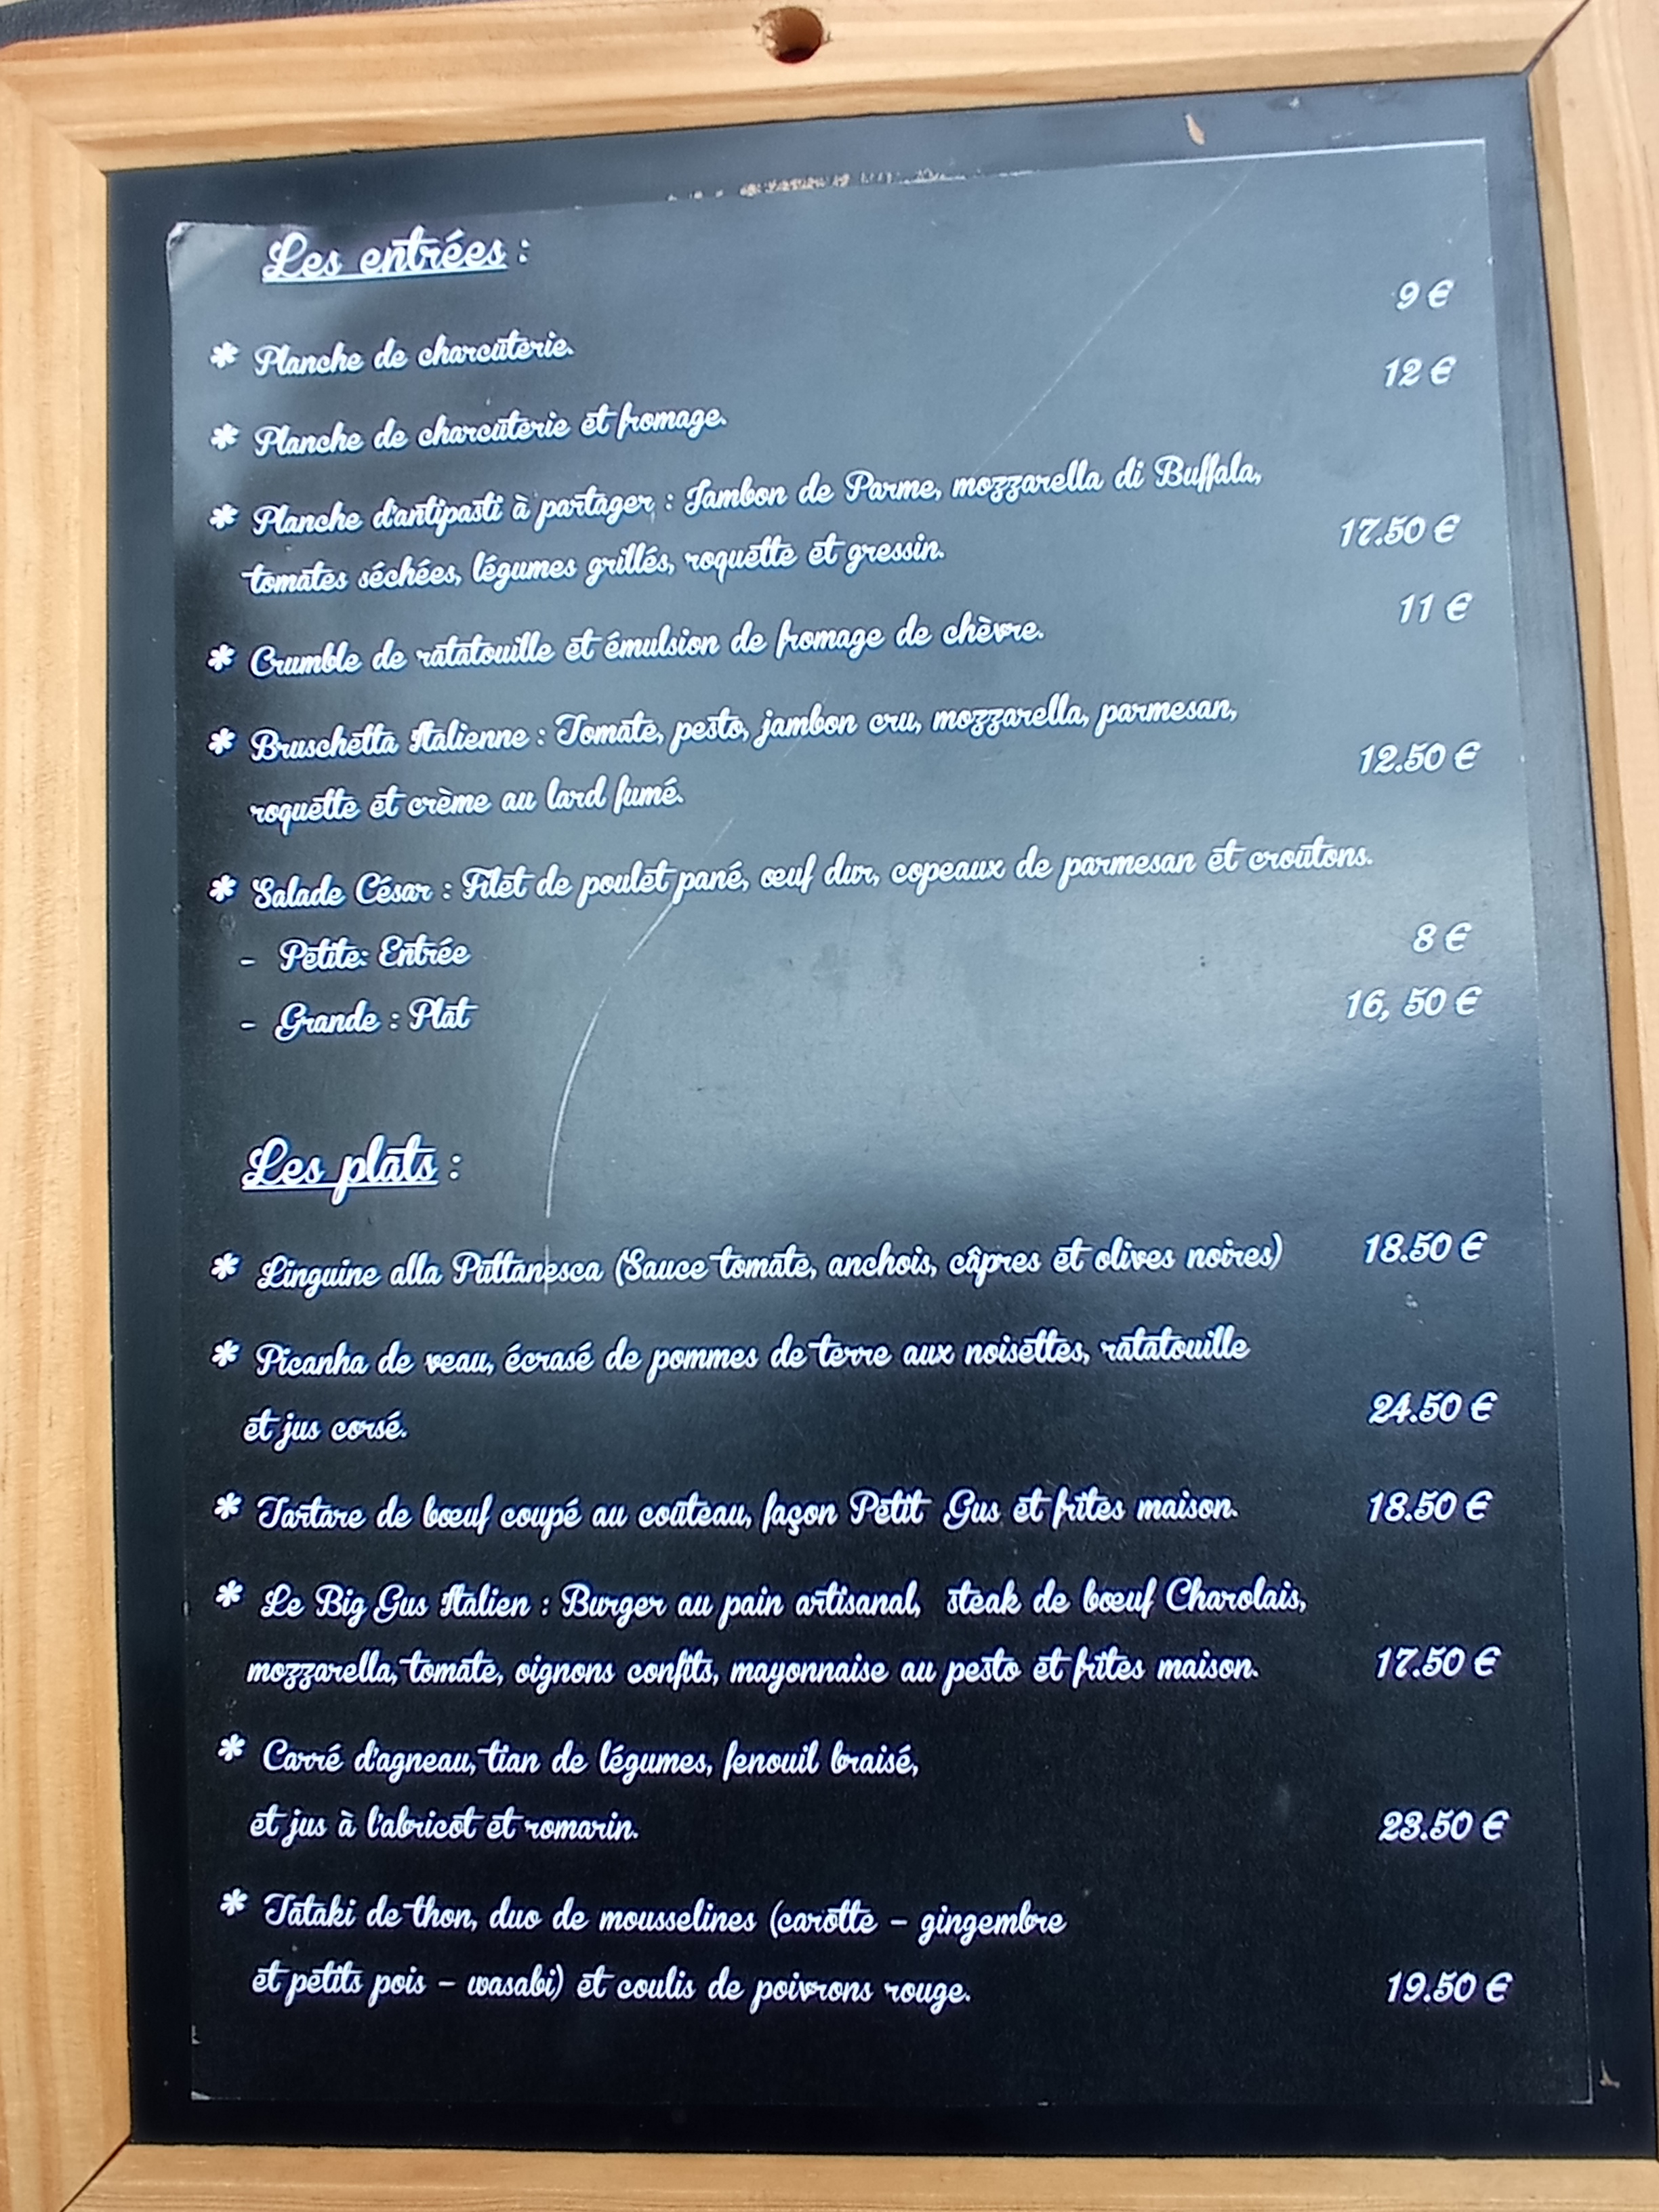 Les entrées :
* Planche de charcuterie. 9 €
* Planche de charcuterie et fromage. 12 €
* Planche d'antipasti à partager : Jambon de Parme, mozzarella di Buffala,
tomates séchées, légumes grillés, roquette et gressin. 17.50 €
* Crumble de ratatouille et émulsion de fromage de chèvre. 11 €
* Bruschetta Italienne : Tomate, pesto, jambon cru, mozzarella, parmesan,
roquette et crème au lard fumé. 12.50 €
* Salade César : Filet de poulet pané, œuf dur, copeaux de parmesan et croutons.
- Petite: Entrée 8 €
- Grande : Plat 16, 50 €
Les plats :
* Linguine alla Puttanesca (Sauce tomate, anchois, câpres et olives noires) 18.50 €
* Picanha de veau, écrasé de pommes de terre aux noisettes, ratatouille
et jus corsé. 24.50 €
* Tartare de bœuf coupé au couteau, façon Petit Gus et frites maison. 18.50 €
* Le Big Gus Italien : Burger au pain artisanal, steak de bœuf Charolais,
mozzarella, tomate, oignons confits, mayonnaise au pesto et frites maison. 17.50 €
* Carré d'agneau, tian de légumes, fenouil braisé,
et jus à l'abricot et romarin. 23.50 €
* Tataki de thon, duo de mousselines (carotte - gingembre
et petits pois - wasabi) et coulis de poivrons rouge. 19.50 €